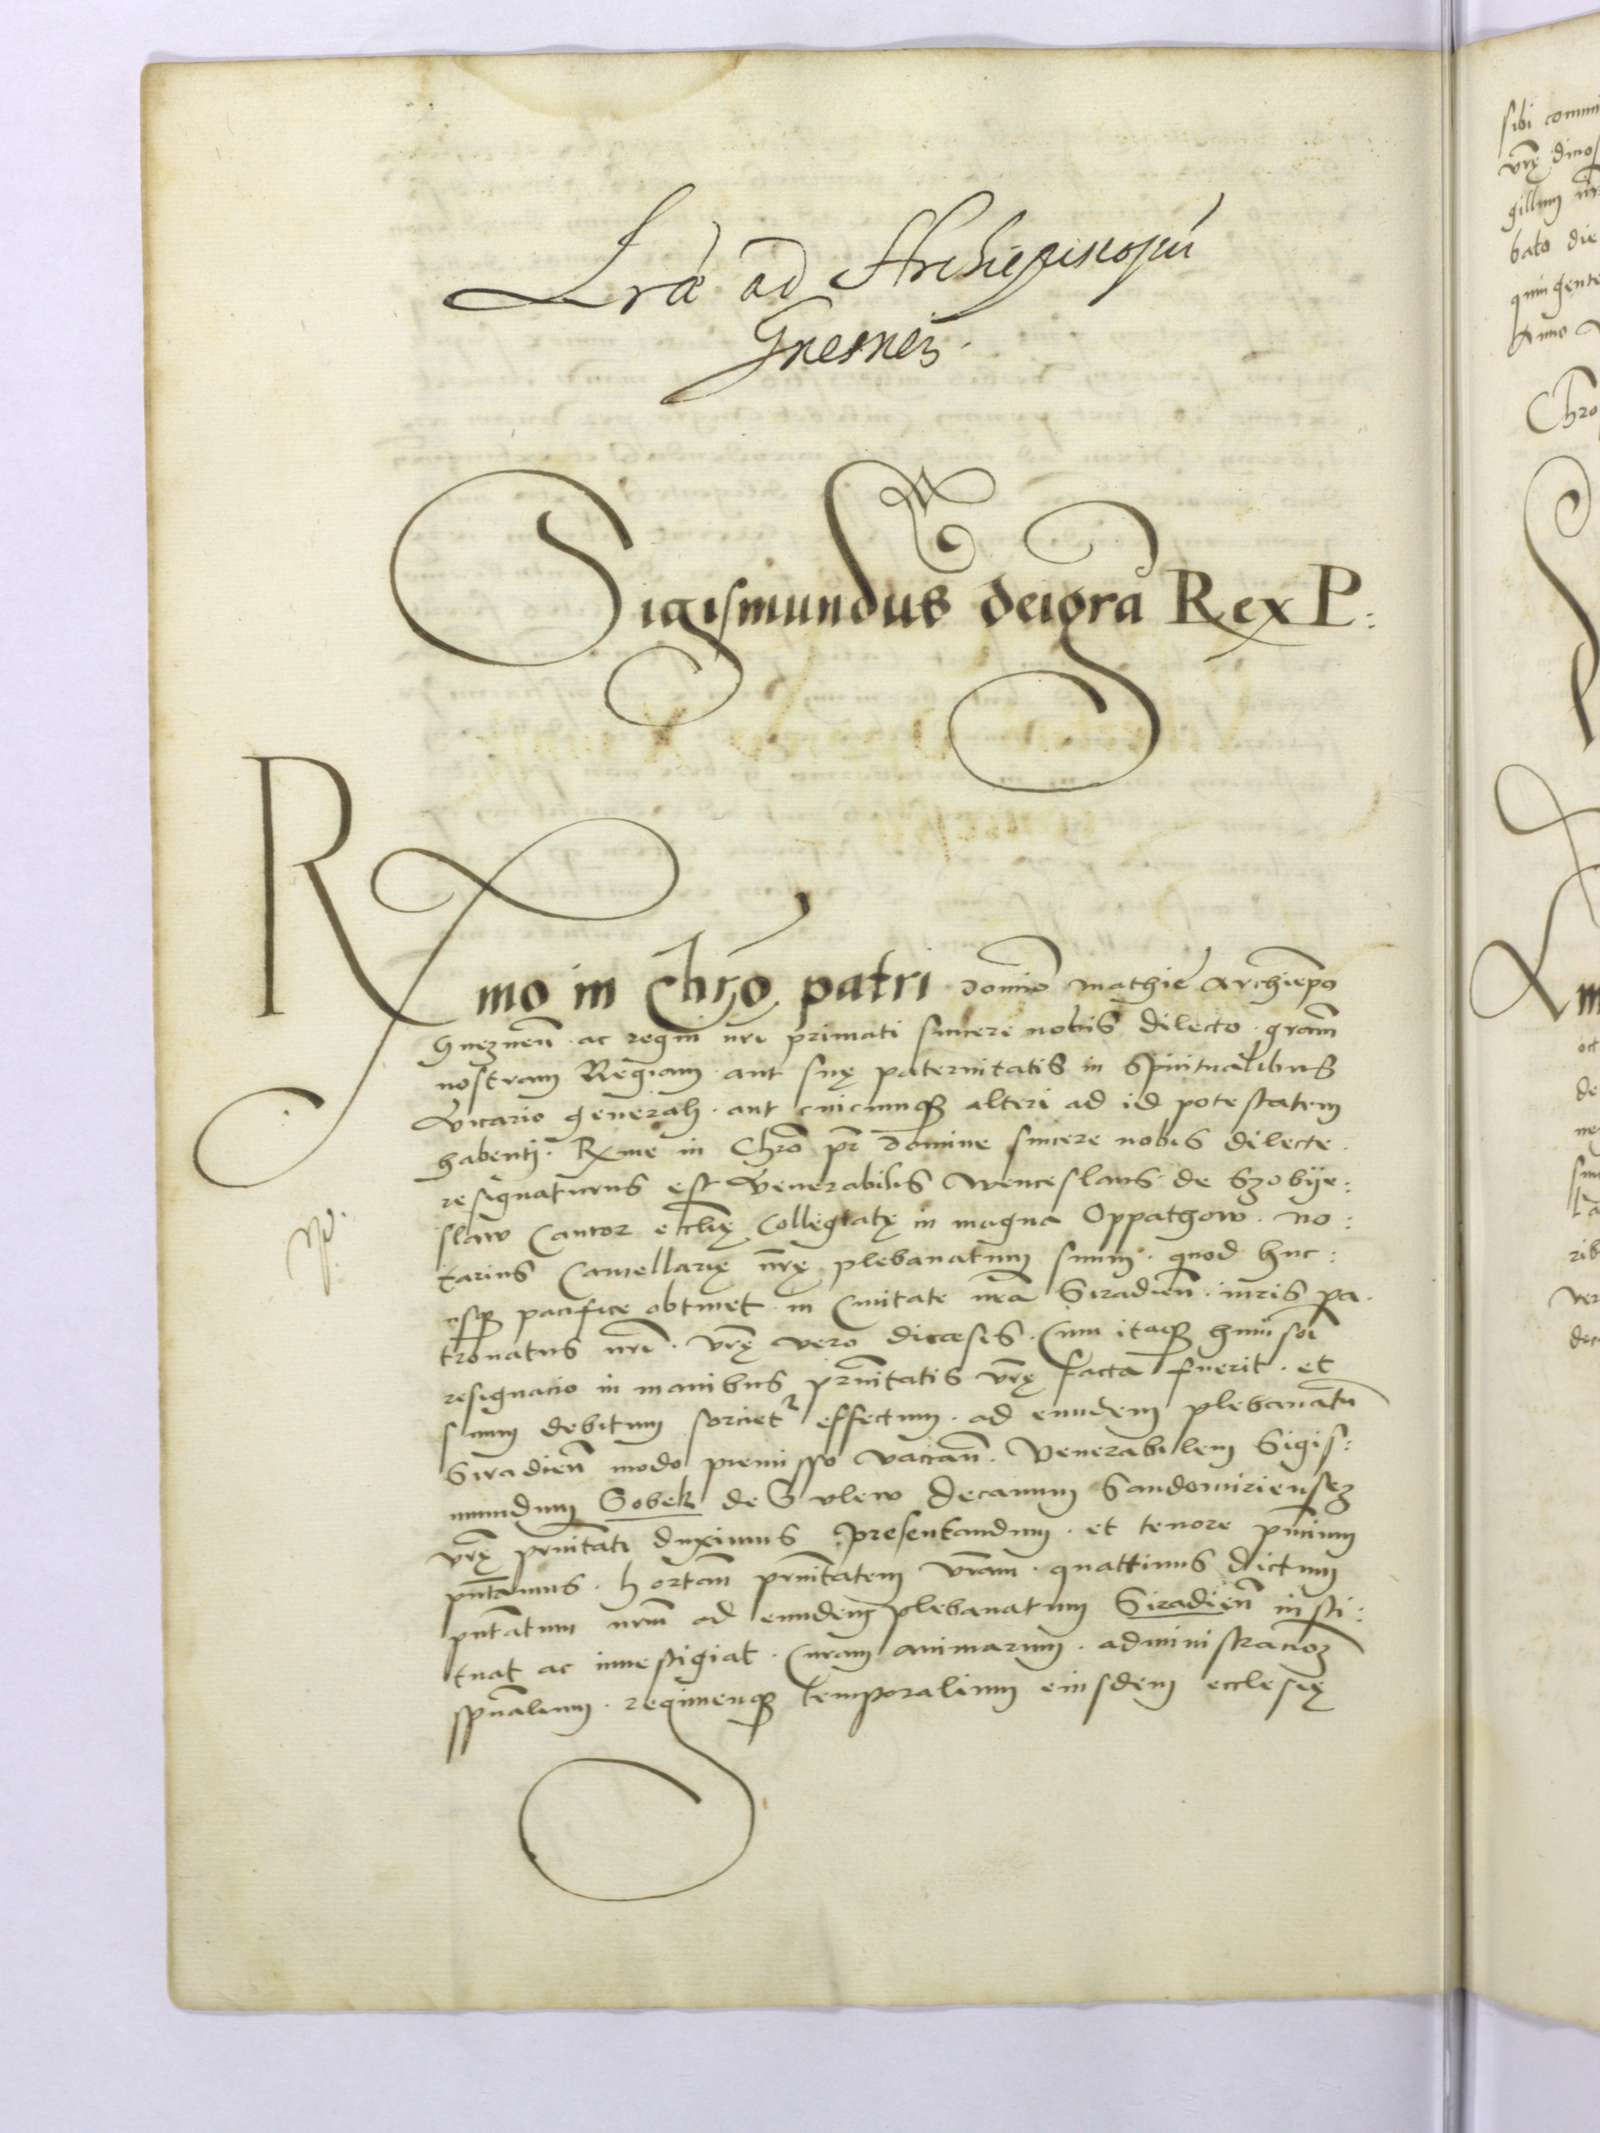 Lrae ad Archiepiscopu
Gnesnen.
Sigismundus dei gra Rex P:
Rmo in Chro patri domino Mathie Archiepo
Gneznen. ac regni nri primati sincere nobis dilecto. gram
nostram Regiam. aut suę paternitatis in Spiritualibus
Vicario generali. aut cuicumq alteri ad id potestatem
habenti. Rxme in Chro pr domine sincere nobis dilecte.
resignaturus est Venerabilis Wenceslaus de Szobije:
slaw Cantor ecclię Collegiatę in magna Oppathow. No:
tarius Cancellarię nrę plebanatum suum. quod huc:
usq pacifice obtinet. in Civitate nra Siradien. iuris pa.
tronatus nri. vrę vero dicæsis. Cum itaq huiusoi
resignacio in manibus prnitatis vrę facta fuerit. et
suum debitum sorciet effectum. ad eundem plebanatu
Siradien modo premisso vacan. Venerabilem Sigis:
mundum Sobek de Sulew Decanum Sandomiriensez
vrę prnitati duximus presentandum. et tenore pntium
pntamus. hortan prnitatem vram. quattinus dictum
pntatum nrm ad eundem plebanatum Siradien insti:
tuat ac investigiat. Curam animarum. administracioz
spualium. regimenq temporalium eiusdem ecclesię
sibi commi
vrę
gillum nr
bato die
quingente
Anno
Chro